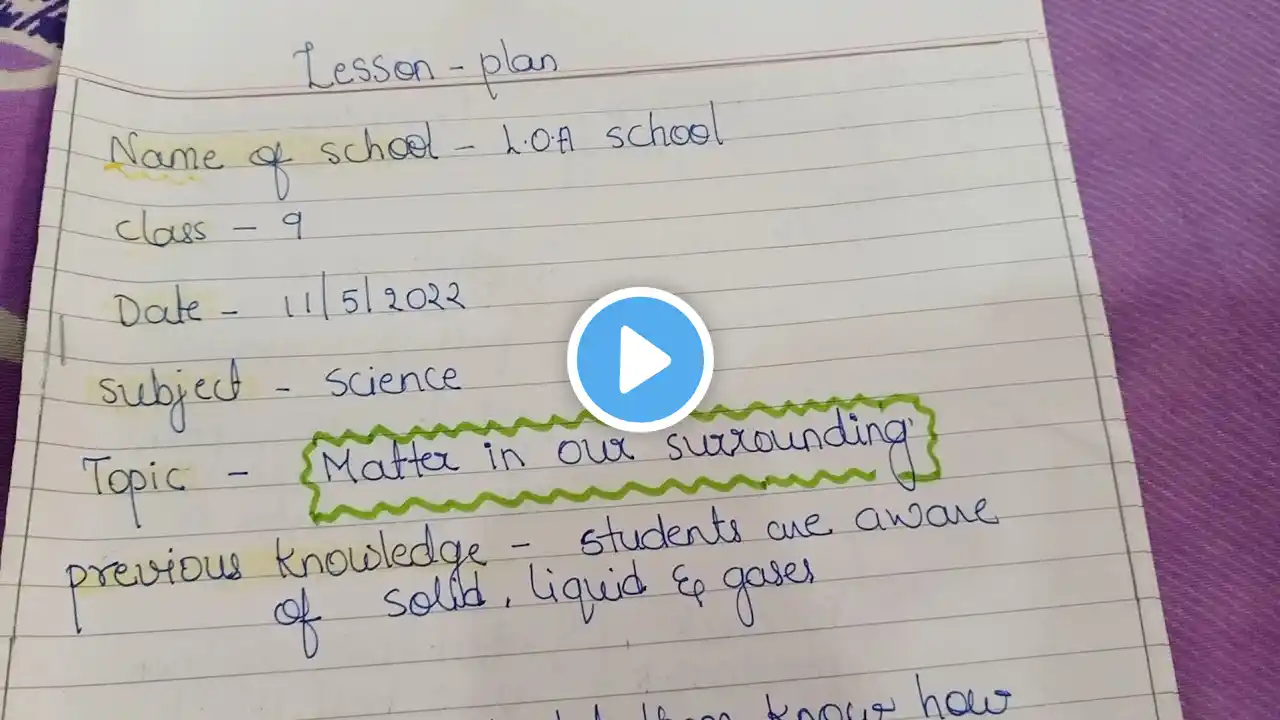 Lesson - plan
Name of school - L.O.A school
Class - 9
Date - 11/5/2022
subject - science
Topic - Matter in our surrounding
previous knowledge - students are aware
of solid, liquid & gases
them know how